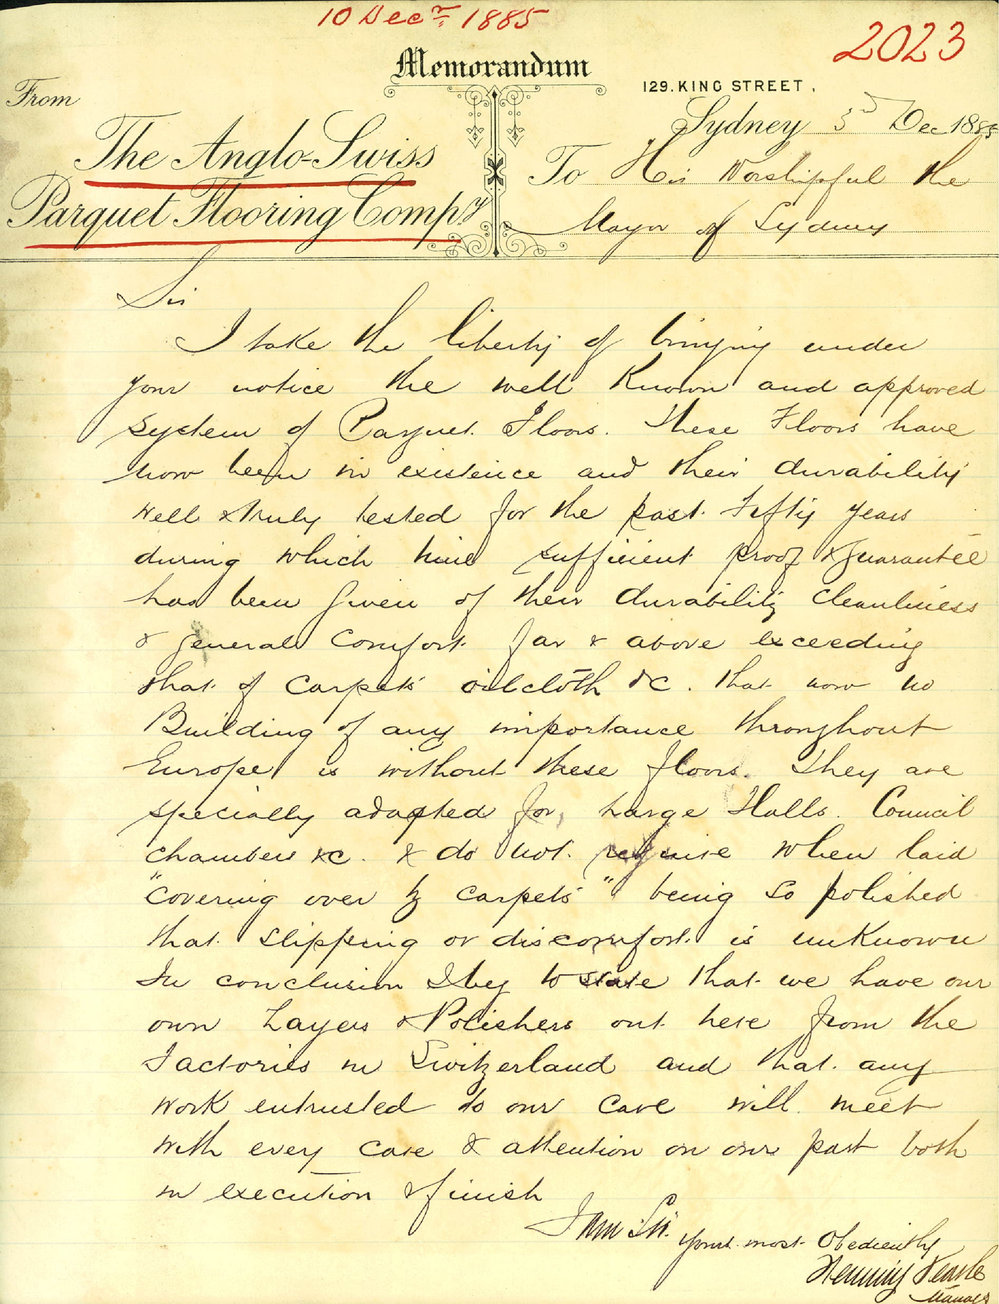 10 Decr 1885
2023
Memorandum
129. KING STREET.
From
Sydney 3rd Dec 1885
The Anglo-Swiss
Parquet Flooring Compy
To His Worshipful the
Mayor of Sydney
Sir
I take the liberty of bringing under
your notice the well Known and approved
system of Parquet Floors. These Floors have
now been in existence and their durability
well & truly tested for the past Fifty years
during which time sufficient proof & guarantee
has been given of their durability cleanliness
& general comfort far & above exceeding
that of carpets oilcloth &c. that now no
Building of any importance throughout
Europe is without these floors. They are
specially adapted for, Large Halls. Council
chambers &c. & do not require when laid
"covering over by carpets" being so polished
that slipping or discomfort is unknown
In conclusion I beg to state that we have our
own Layers & Polishers out here from the
Factories in Switzerland and that any
work entrusted to our care will meet
with every care & attention on our part both
in execution & finish
I am Sir.
Yours most Obediently
Manager